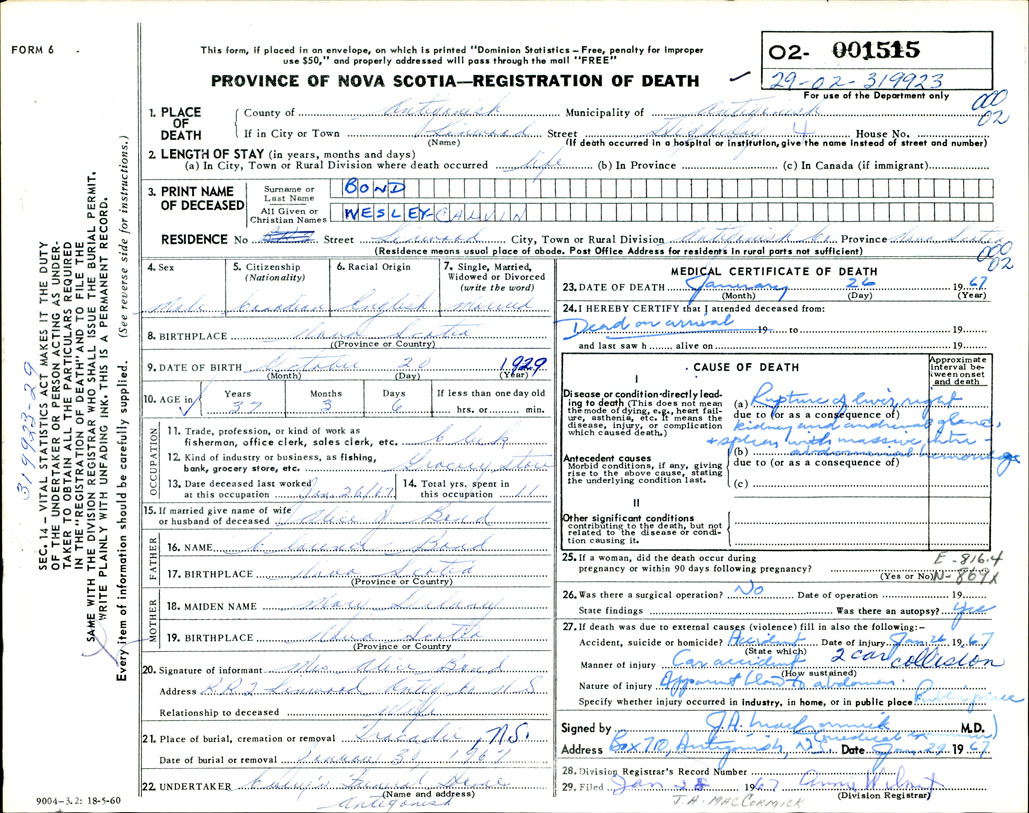 FORM 6
This form, if placed in an envelope, on which is printed "Dominion Statistics – Free, penalty for improper
use $50," and properly addressed will pass through the mail "FREE"
PROVINCE OF NOVA SCOTIA—REGISTRATION OF DEATH
02- 001515
29-02-319923
For use of the Department only
000
02
1. PLACE OF DEATH
County of Antigonish Municipality of Antigonish
If in City or Town Linwood Street Highway 4 House No.
(Name) (If death occurred in a hospital or institution, give the name instead of street and number)
2. LENGTH OF STAY (in years, months and days)
(a) In City, Town or Rural Division where death occurred life (b) In Province (c) In Canada (if immigrant)
3. PRINT NAME OF DECEASED
Surname or Last Name BOND
All Given or Christian Names WESLEY CALVIN
RESIDENCE No Street Linwood City, Town or Rural Division Antigonish Co. Province Nova Scotia
(Residence means usual place of abode. Post Office Address for residents in rural parts not sufficient)
000
02
4. Sex Male
5. Citizenship (Nationality) Canadian
6. Racial Origin English
7. Single, Married, Widowed or Divorced (write the word) Married
8. BIRTHPLACE Nova Scotia
(Province or Country)
9. DATE OF BIRTH October 20 1929
(Month) (Day) (Year)
10. AGE in Years 37 Months 3 Days 6 If less than one day old hrs. or min.
OCCUPATION
11. Trade, profession, or kind of work as fisherman, office clerk, sales clerk, etc. Clerk
12. Kind of industry or business, as fishing, bank, grocery store, etc. Grocery Store
13. Date deceased last worked at this occupation Jan. 26/67
14. Total yrs. spent in this occupation 11
15. If married give name of wife or husband of deceased Alice J Bond
FATHER
16. NAME Bond
17. BIRTHPLACE Nova Scotia
(Province or Country)
MOTHER
18. MAIDEN NAME Mary
19. BIRTHPLACE Nova Scotia
(Province or Country)
20. Signature of informant Mrs Alice Bond
Address R.R.2 Linwood Antig Co N S
Relationship to deceased Wife
21. Place of burial, cremation or removal Tracadie N.S.
Date of burial or removal 30, 1967
22. UNDERTAKER Funeral Home
(Name and address)
Antigonish
MEDICAL CERTIFICATE OF DEATH
23. DATE OF DEATH January 26 1967
(Month) (Day) (Year)
24. I HEREBY CERTIFY that I attended deceased from:
Dead on arrival 19 to 19
and last saw h alive on 19
CAUSE OF DEATH
Approximate interval between onset and death
I
Disease or condition directly leading to death (This does not mean the mode of dying, e.g., heart failure, asthenia, etc. It means the disease, injury, or complication which caused death.)
(a) Rupture of liver, right
due to (or as a consequence of)
kidney and adrenal gland,
+ spleen with massive intra-
(b) abdominal hemorrhage
due to (or as a consequence of)
(c)
Antecedent causes
Morbid conditions, if any, giving rise to the above cause, stating the underlying condition last.
II
Other significant conditions
contributing to the death, but not related to the disease or condition causing it.
25. If a woman, did the death occur during pregnancy or within 90 days following pregnancy?
(Yes or No)
E-816.4
N-869x
26. Was there a surgical operation? No Date of operation 19
State findings Was there an autopsy? Yes
27. If death was due to external causes (violence) fill in also the following:–
Accident, suicide or homicide? Accident Date of injury Jan 26 1967
(State which)
Manner of injury Car accident 2 car collision
(How sustained)
Nature of injury Apparent blow to abdomen
Specify whether injury occurred in industry, in home, or in public place Public place
Signed by J.A. MacCormick M.D.
(medical examiner)
Address Box 710, Antigonish, N.S. Date Jan 29 1967
28. Division Registrar's Record Number
29. Filed Jan 28 1967
(Division Registrar)
J.A. MACCORMICK
319923-29
SEC. 14 – VITAL STATISTICS ACT MAKES IT THE DUTY
OF THE UNDERTAKER OR PERSON ACTING AS UNDER-
TAKER TO OBTAIN ALL THE PARTICULARS REQUIRED
IN THE "REGISTRATION OF DEATH" AND TO FILE THE
SAME WITH THE DIVISION REGISTRAR WHO SHALL ISSUE THE BURIAL PERMIT.
WRITE PLAINLY WITH UNFADING INK. THIS IS A PERMANENT RECORD.
Every item of information should be carefully supplied. (See reverse side for instructions.)
9004-3.2: 18-5-60